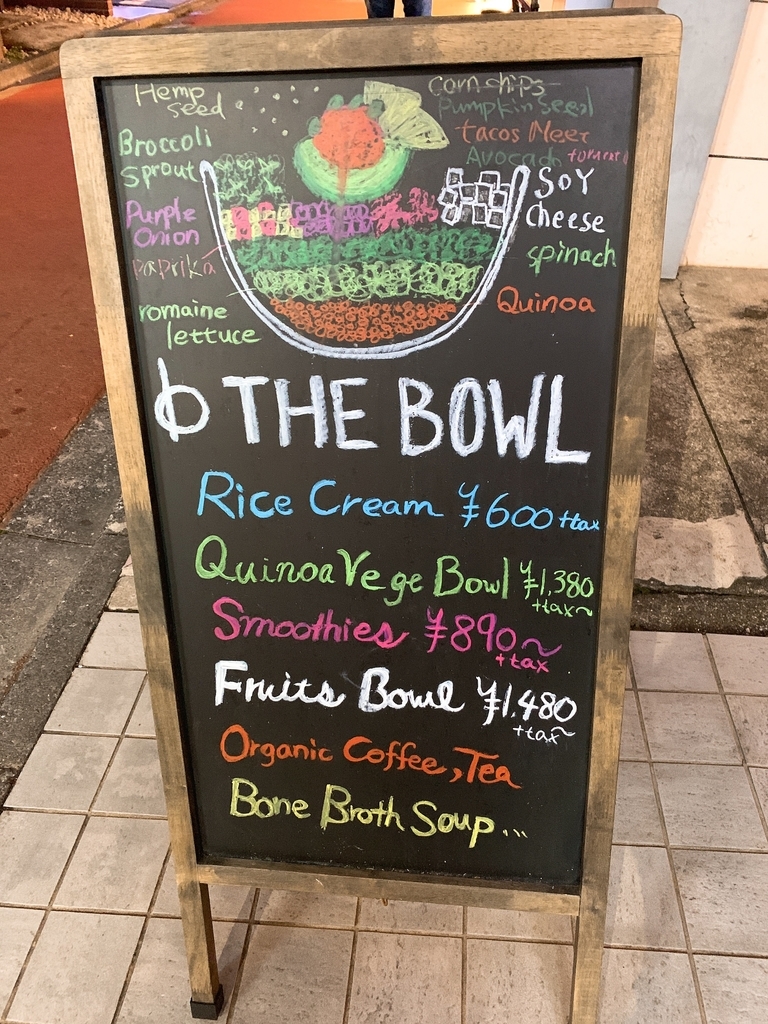 Hemp
seed
Broccoli
Sprout
Purple
Onion
paprika
romaine
lettuce
corn chips
Pumpkin Seed
tacos Meet
Avocado tomato
SOY
cheese
spinach
Quinoa
THE BOWL
Rice Cream ¥600+tax
Quinoa Vege Bowl ¥1,380
+tax~
Smoothies ¥890~
+tax
Fruits Bowl ¥1,480
+tax~
Organic Coffee, Tea
Bone Broth Soup...